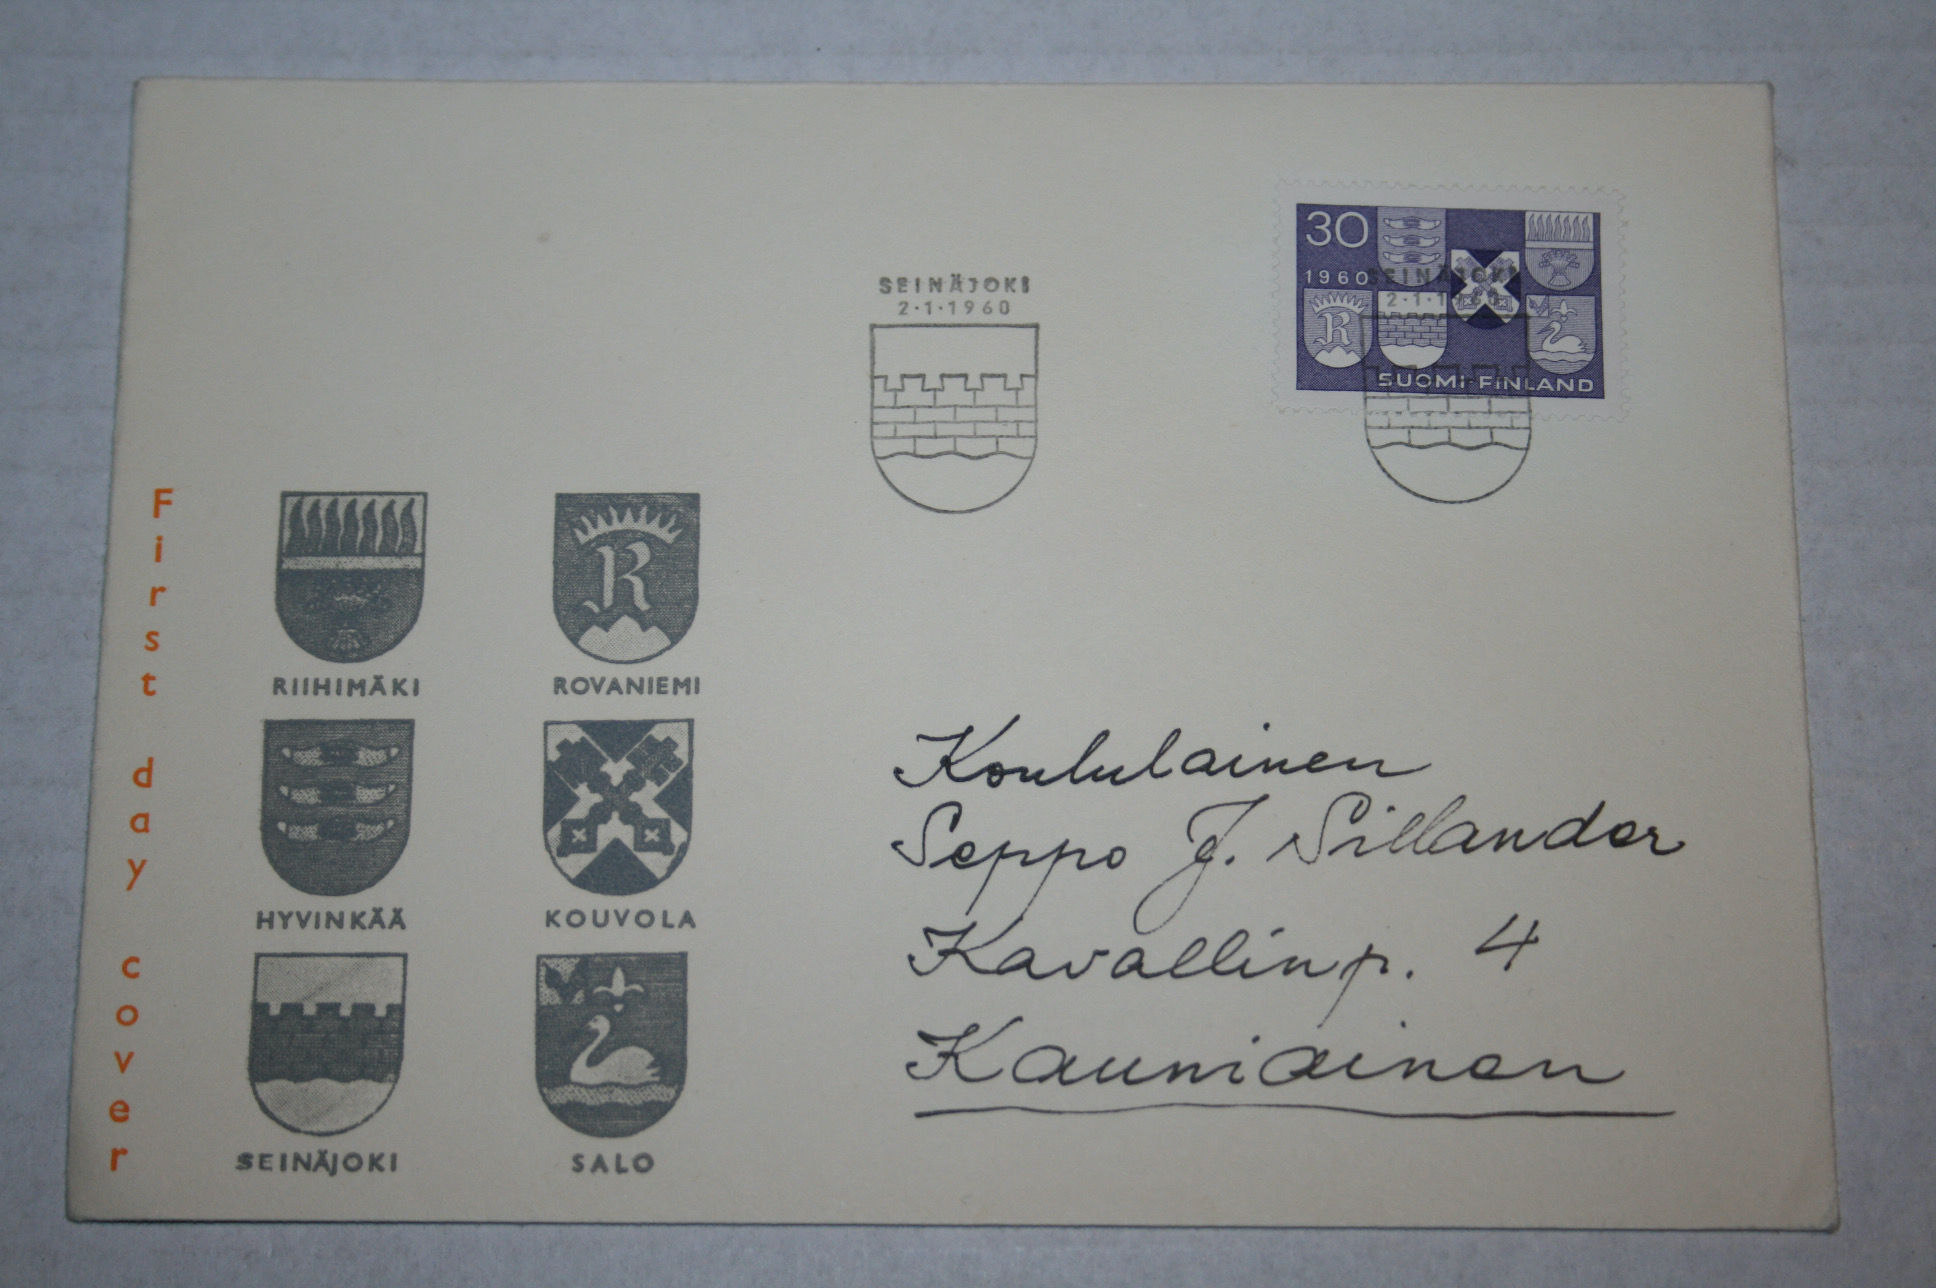 30
1960
SUOMI-FINLAND
SEINÄJOKI
2·1·1960
SEINÄJOKI
2·1·1960
First day cover
RIIHIMÄKI
R
ROVANIEMI
HYVINKÄÄ
KOUVOLA
SEINÄJOKI
SALO
Koululainen
Seppo J. Sillander
Kavallinp. 4
Kauniainen